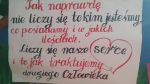 Tak naprawdę
nie liczy się to kim jesteśmy,
co posiadamy i w jakich
liczy się nasze serce
i to jak traktujemy
drugiego człowieka